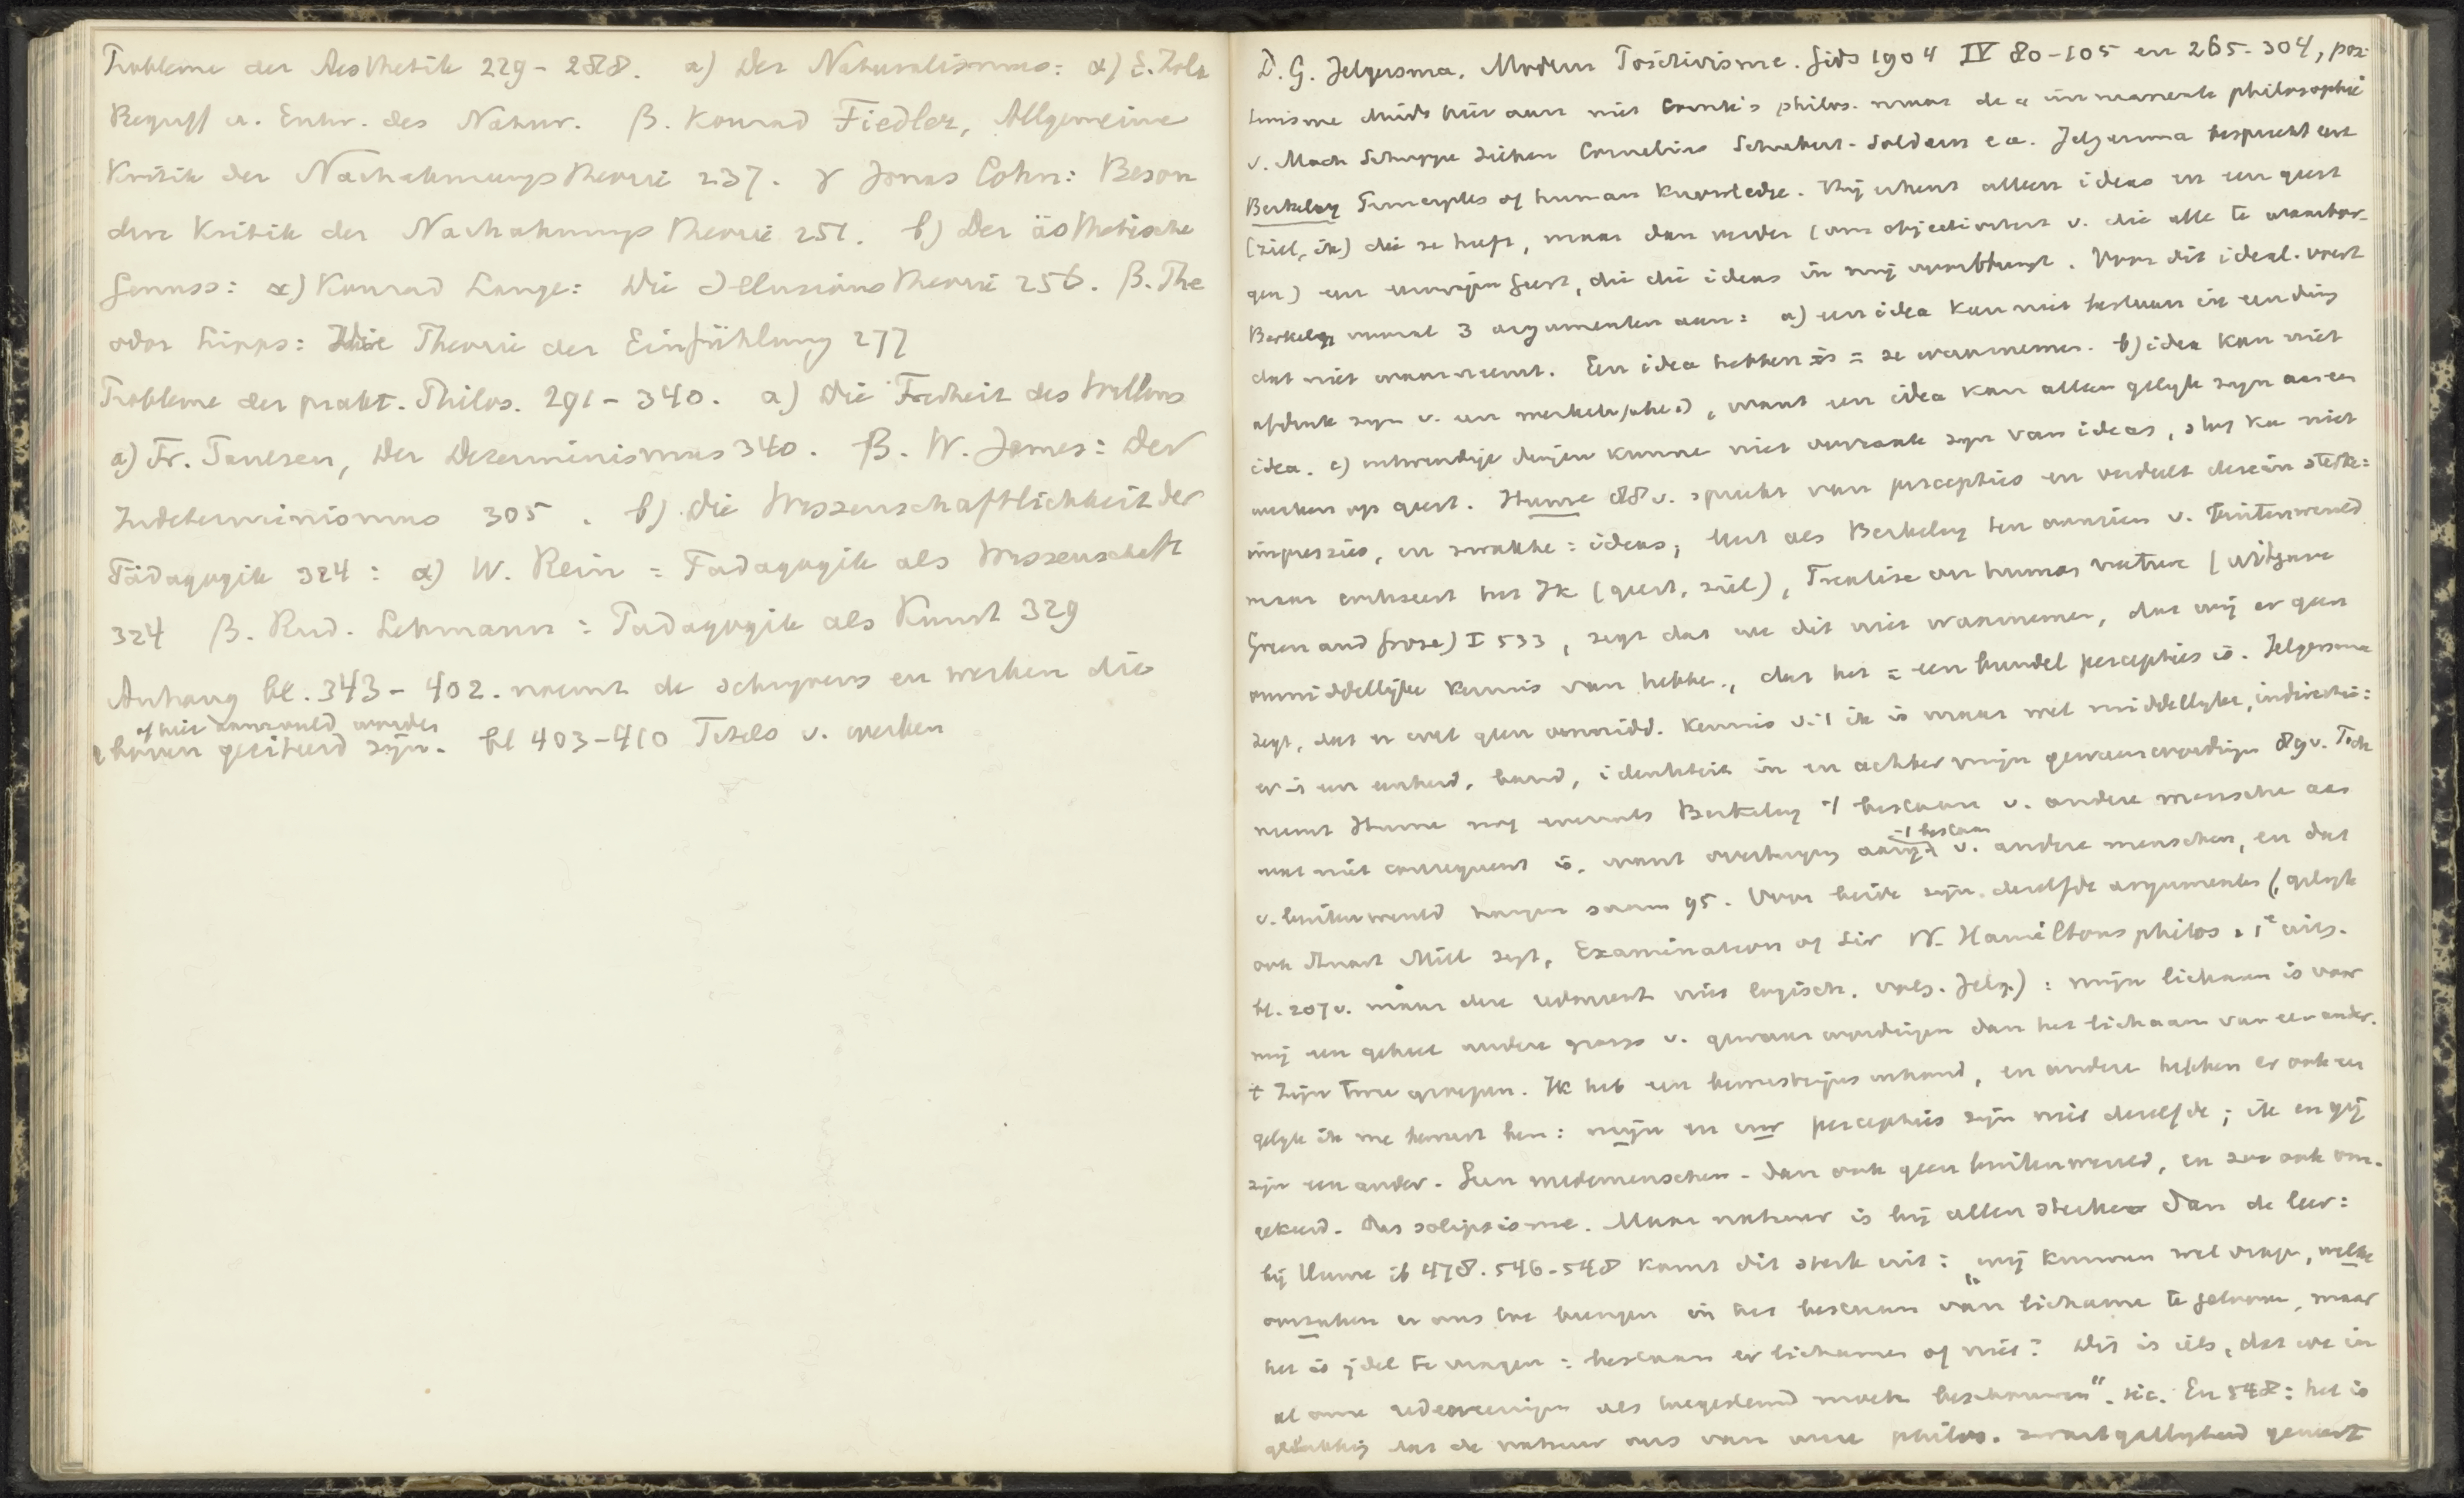 Probleme der Aesthetik 229-288. a) Der Naturalismus: α) E. Zola
Begriff u. Entw. des Natur. β. Konrad Fiedler, Allgemeine
Kritik der Nachahmungstheorie 237. γ Jonas Cohn: Beson
dere Kritik der Nachahmungstheorie 251. b) Der ästhetische
Genuss: α) Konrad Lange: Die Illusionstheorie 256. β. The
odor Lipps: Die Theorie der Einfühlung 277
Probleme der prakt. Philos. 291-340. a) Die Freiheit des Willens
a) Fr. Paulsen, Der Determinismus 340. β. W. James: Der
Indeterminismus 305. b) Die Wissenschaftlichkeit der
Pädagogik 324: α) W. Rein = Padagogik als Wissenschaft
324 β. Rud. Lehmann: Padagogik als Kunst 329
Anhang bl. 343-402. noemt de schrijvers en werken die
of hier aanvuld worden
boven geciteerd zijn. bl 403-410 Titels v. werken
D. G. Jelgersma, Modern Positivisme. Gids 1904 IV 80-105 en 265-304, posi
tivisme duidt hier aan niet Comte's philos. maar de immanente philosophie
v. Mach Schuppe Ziehen Cornelius Schubert-Soldern e.a. Jelgersma bespreekt eerst
Berkeley Principles of human Knowledge. Hij erkent alleen ideas en een geest
(ziel, ik) die ze heeft, maar dan verder (om objectiviteit v. die alle te waarbor-
gen) een eeuwigen Geest, die die ideas in mij voortbrengt. Voor dit ideal. voert
Berkeley vooral 3 argumenten aan: a) een idea kan niet bestaan in een ding
dat niet waarneemt. Een idea hebben is = ze waarnemen. b) idea kan niet
afdruk zijn v. een werkelijkheid, want een idea kan alleen gelijk zijn aan een
idea. c) uitwendige dingen kunne niet oorzaak zijn van ideas, stof kan niet
werken op geest. Hume 88v. spreekt van percepties en verdeelt deze in sterke =
impressies, en zwakke = ideas; leert als Berkeley ten aanzien v. buitenwereld
maar critiseert het Ik (geest, ziel), Treatise on human nature (uitgave
Green and Grose) I 533, zegt dat we dit niet waarnemen, dat wij er geen
onmiddellijke kennis van hebbe., dat het = een bundel percepties is. Jelgersma
zegt, dat er wel geen onmidd. kennis v. 't ik is maar wel middellijke, indirecte:
er is een eenheid, band, identiteit in en achter mijn gewaarwordingen 89v. Toch
neemt Hume nog evenals Berkeley 't bestaan v. andere mensche aan
wat niet consequent is. want overtuiging aang. 't bestaan v. andere menschen, en dat
v. buitenwereld hangen saam 95. Voor beide zijn dezelfde argumenten (, gelijk
ook Stuart Mill zegt, Examination of Sir W. Hamiltons philos. 1e uitg.
bl. 207v. maar dere redeneert niet logisch. vols. Jelg.) : mijn lichaam is voor
mij een geheel andere groep v. gewaarwordingen dan het lichaam van een ander.
't zijn twee groepen. Ik heb een bewustzijnsinhoud, en andere hebben er ook een
gelijk ik me bewust ben: mijn en uw percepties zijn niet dezelfde; ik en gij
zijn een ander. Geen medemenschen - dan ook geen buitenwereld, en zoo ook om-
gekeerd. Dus solipsisme. Maar natuur is bij allen sterker dan de leer:
bij Hume ib 478. 546-548 komt dit sterk uit: "wij kunnen wel vragen, welke
oorzaken er ons toe brengen in het bestaan van lichame te gelooven, maar
het is ijdel te vragen: bestaan er lichamen of niet? Dit is iets, dat we in
al onze redeneeringen als toegestemd moeten beschouwen". sic. En 548: het is
gelukkig dat de natuur ons van onze philos. zwartgalligheid geneest